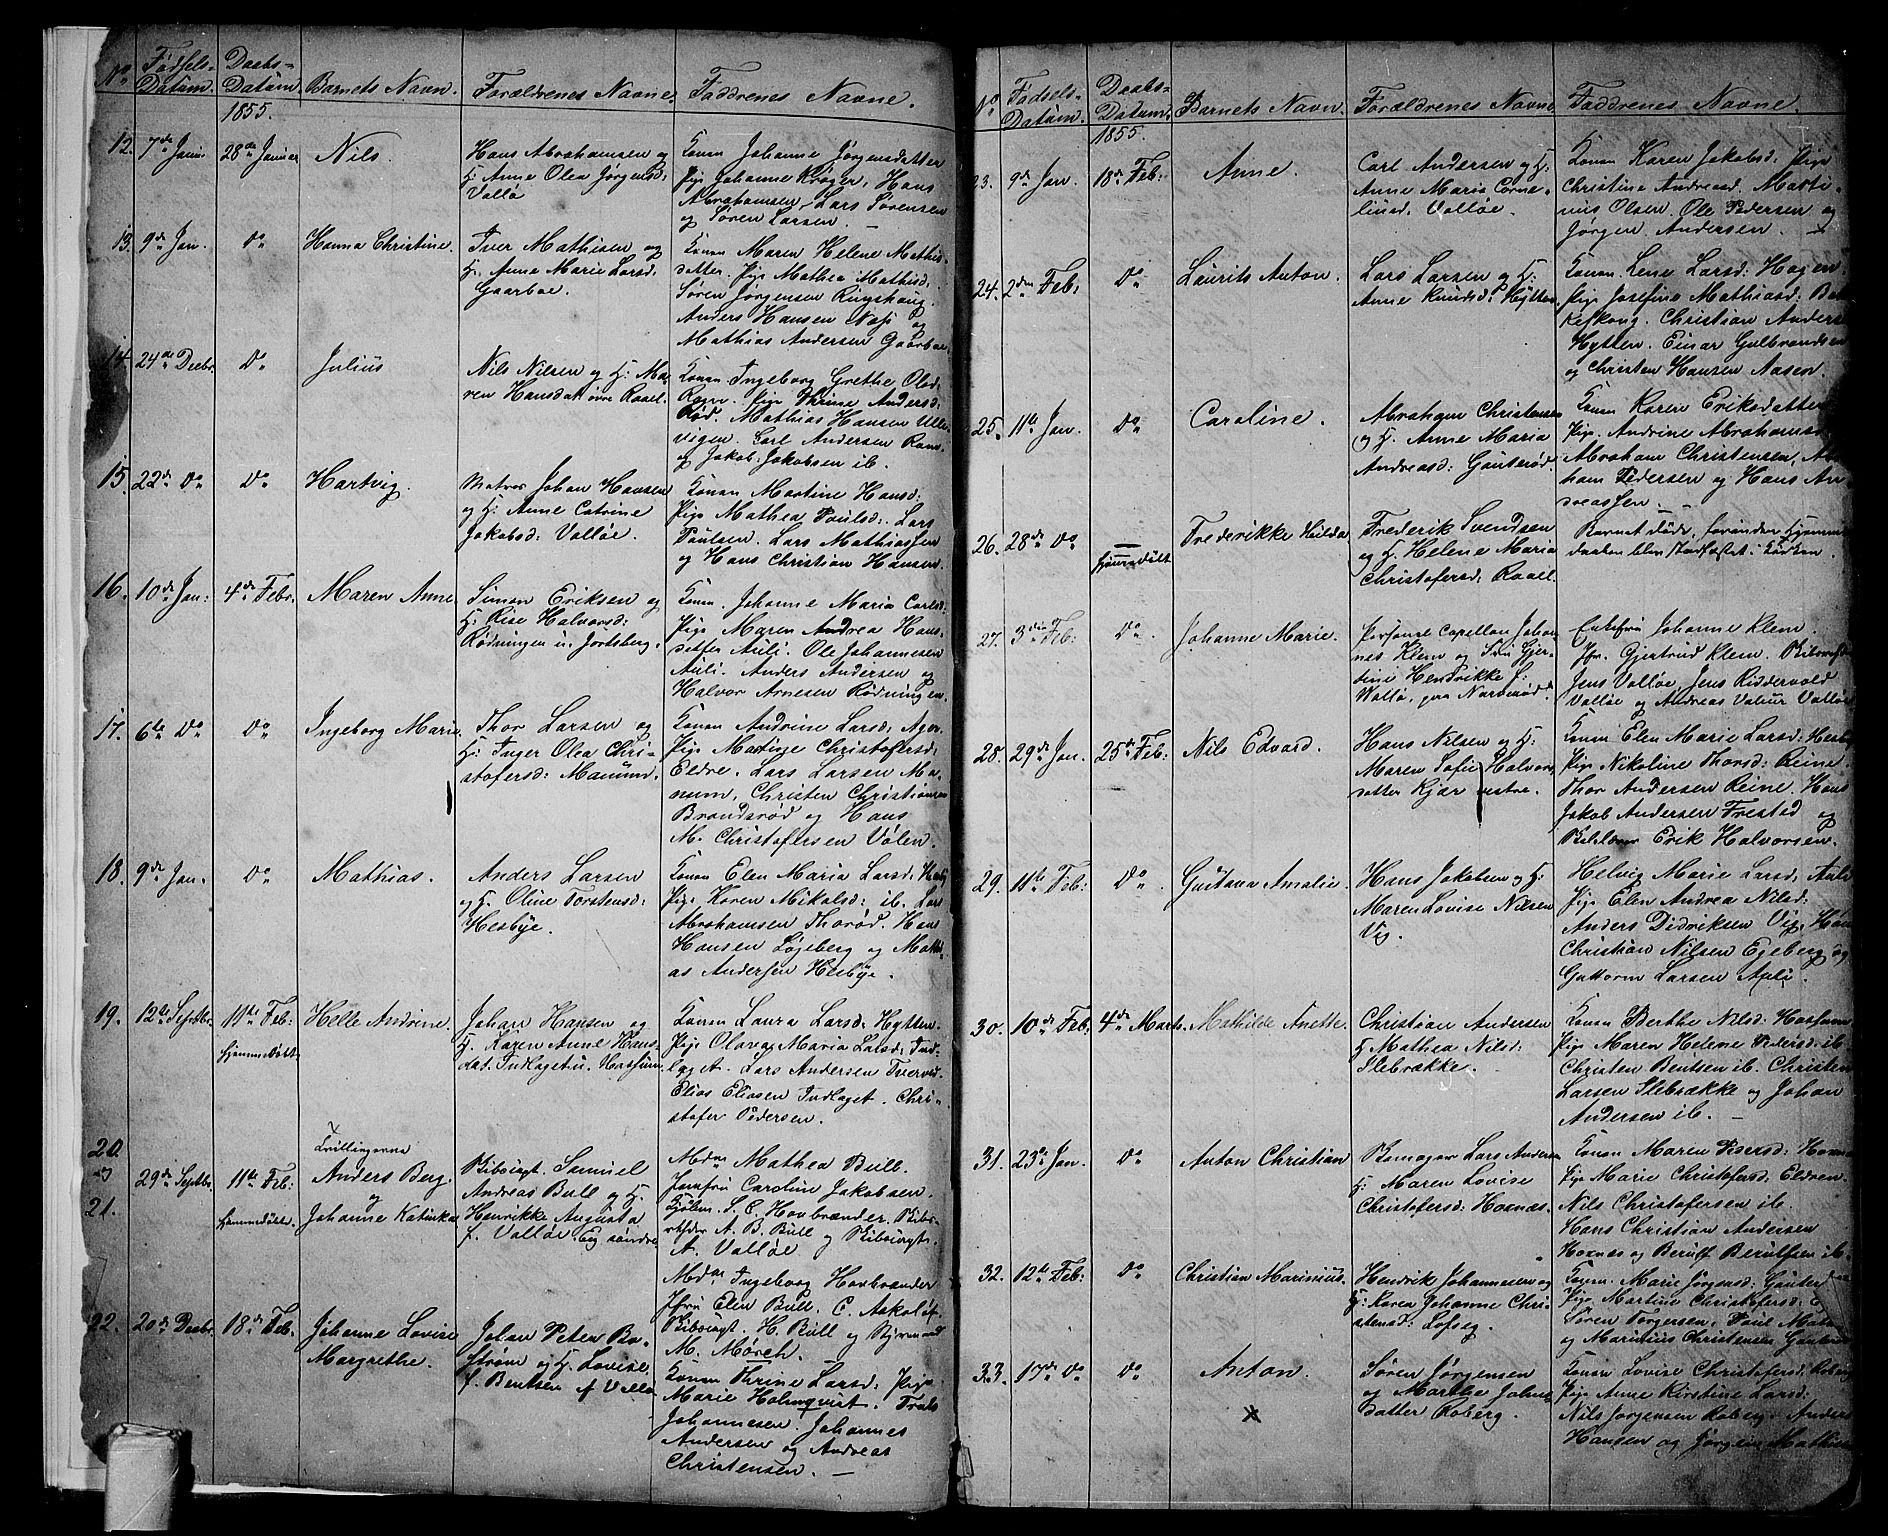 No Fødsels-Datum. Daabs-Datum Barnets Navn. Forældrenes Navne. Faddrenes Navne.
1855.
12. 7de Janu. 28de Januar Nils. Hans Abrahamsen og
H: Anne Olea Jørgensd:
Valløe
Konen Johanne Jørgensdatter
Pige Johanne Krøger, Hans
Abrahamsen, Lars Sørensen
og Søren Larsen.
13. 9de Jan. Do Hanna Christine. Iver Mathisen og
H: Anne Marie Larsd:
Gaarboe.
Konen Maren Helene Mathis
datter. Pige Mathea Mathisd:
Søren Jørgensen Ringshaug.
Anders Hansen Næs og
Mathias Andersen Gaarboe.
14. 24de Decbr. Do Julius Nils Nilsen og H: Ma-
ren Hansdat. øvre Raael.
Konen Ingeborg Grethe Olsd.
Pige Thrine Andersd:
Rød. Mathias Hansen
Carl Andersen
og Jakob Jakobsen ib.
15. 22de Do Do Hartvig. Matros Johan Hansen
og H: Anne Catrine
Jakobsd: Valløe.
Konen Martine Hansd:
Pige Mathea Paulsd: Lars
Paulsen. Lars Mathiassen
og Hans Christian Hansen.
16. 10de Jan: 4de Febr. Maren Anne. Simon Eriksen og
H: Rise Halvorsd:
Rødningen u. Jortsberg.
Konen. Johanne Maria Carlsd:
Pige Maren Andrea Hans-
datter Auli. Ole Johannesen
Auli. Anders Andersen og
Halvor Arnesen Rødningen
17. 6te Do Do Ingeborg Marie. Thor Larsen og
H: Inger Olea Chri-
stofersd: Manum.
Konen Andrine Larsd:
Pige Martine Christofersd:
Eldre. Lars Larsen Ma-
num, Christen Christiansen
Brandsrød og Hans
M. Christofersen Volen.
18. 9de Jan. Do Mathias. Anders Larsen
og H: Oline Torstensd:
Hesbye.
Konen Elen Maria Larsd:
Pige Karen Mikalsd: ib. Lars
Abrahamsen Thorød. Hans
Hansen Løgeberg og Mathi-
as Andersen Hesbye.
19. 12te Septbr. 11te Feb:
hjemmedøbt
Helle Andrine. Johan Hansen og
H: Karen Anne Hans-
dat. Indlaget u. Hassum.
Konen Laura Larsd: Hytten.
Pige Olava Maria Larsd: Ind-
laget. Lars Andersen
Elias Eliasen Indlaget. Chri-
stofer Pedersen.
20. og 21. 29de Septbr. 11te Feb:
hjemmedøbte.
Tvillingerne
Anders Bug.
og
Johanne Katinka
Skibscapt. Samuel
Andreas Bull og H:
Henrikke Augusta
f. Valløe. Eig søndre
Mdme Mathea Bull.
Jomfru Caroline Jakobsen.
S. C. Havbrænder.
A. B. Bull og Skibscapt.
A. Valløe
22. 20de Decbr. 18de Feb. Johanne Lovise
Margrethe.
Johan Peter Bo-
strøm og H: Lovise
f. Bentsen af Valløe
Mdme Ingeborg Havbrænder
Jfru Elen Bull. C.
Skibscapt. H. Bull og Styrmand
M. Mørch.
Konen Thrine Larsd: Pige
Marie Holmqvist.
Johannesen. Johannes
Andersen og Andreas
Christensen.
No Fødsels-Datum. Daabs-Datum. Barnets Navn. Forældrenes Navne Faddrenes Navne.
1855.
23. 9de Jan. 18de Feb: Anne. Carl Andersen og H:
Anne Maria Corne-
liusd. Valløe.
Konen Karen Jakobsd: Pige
Christine Andreasd. Marti-
nius Olsen. Ole Pedersen og
Jørgen Andersen.
24. 2den Feb: Do Laurits Anton. Lars Larsen og H:
Anne Knudsd: Hytten.
Konen. Lene Larsd: Hagen
Pige Josefine Mathiasd:
Christian Anders
Hytten. Einar Gulbrandsen
og Christen Hansen Aasen.
25. 11te Jan. Do Caroline. Abraham Christensen
og H: Anne Maria
Andreasd: Gauterød.
Konen Karen Eriksdatter
Pige. Andrine Abrahamsd:
Abraham Christensen, Abra
ham Pedersen og Hans An-
dreassen.
26. 28de Do
hjemmedøbt
Frederikke Hulda Frederik Svendsen
og H: Helene Maria
Christofersd: Raael.
Barnet døde, forinden Hjemme
daaben blev stadfæstet i Kirken.
27. 3die Feb: Do. Johanne Marie. Personel Capellan Johan-
nes Klem og Fru Gjer-
dine Hendrikke f.
Valløe, paa Narverød.
Enkefru Johanne Klem.
Jfr. Gjertrud Klem.
Jens Valløe, Jens Riddervold
Valløe og Andreas Valeur Valløe
28. 29de Jan. 25de Feb: Nils Edvard. Hans Nilsen og H:
Maren Sofie Halvors
datter Kjær vestre.
Konen Elen Marie Larsd:
Pige Nikoline Thorsd: Reine.
Thor Andersen Reine. Hans
Jakob Andersen Frestad og
Erik Halvorsen.
29. 11te Feb: Do. Gustava Amalie. Hans Jakobsen og H:
Maren Lovise Nilsen
Vig.
Helvig Marie Larsd: Auli
Pige Elen Andrea Nilsd:
Anders Didriksen Vig. Hans
Christian Nilsen Egeberg og
Guttorm Larsen Auli.
30. 10de Feb. 4de Marts. Mathilde Anette. Christian Andersen
H Mathea Nilsd:
Slebrække.
Konen Berthe Nilsd: Hassum
Pige Maren Helene Pedersd: ib
Christen Bentsen ib. Christen
Larsen Slebrække og Johan
Andersen ib.
31. 23de Jan. Do Anton Christian Lars Anders
H: Maren Lovise
Christofersd: Hoxnæs.
Konen Maren Pedersd:
Pige Marie Christofersd: Eldren.
Nils Christofersen ib.
Hans Christian Andersen
Hoxnæs og Berulf Berulfsen ib.
32. 12te Feb: Do Christian Marinius. Hendrik Johannesen og
H: Karen Johanne Chri-
stensd: Lofseg.
Konen. Marie Jørgensd: Gauter
Pige Martine Christofersd:
Søren Torgersen. Paul
og Marinius Christensen Gauterød
33. 17de Do Do Anton. Søren Jørgensen
og Marthe Johns
datter Roberg.
Konen Lovise Christofersd: Roberg
Pige Anne Kirstine Larsd:
Nils Jørgensen Roberg. Anders
Hansen og Jørgen Mathis